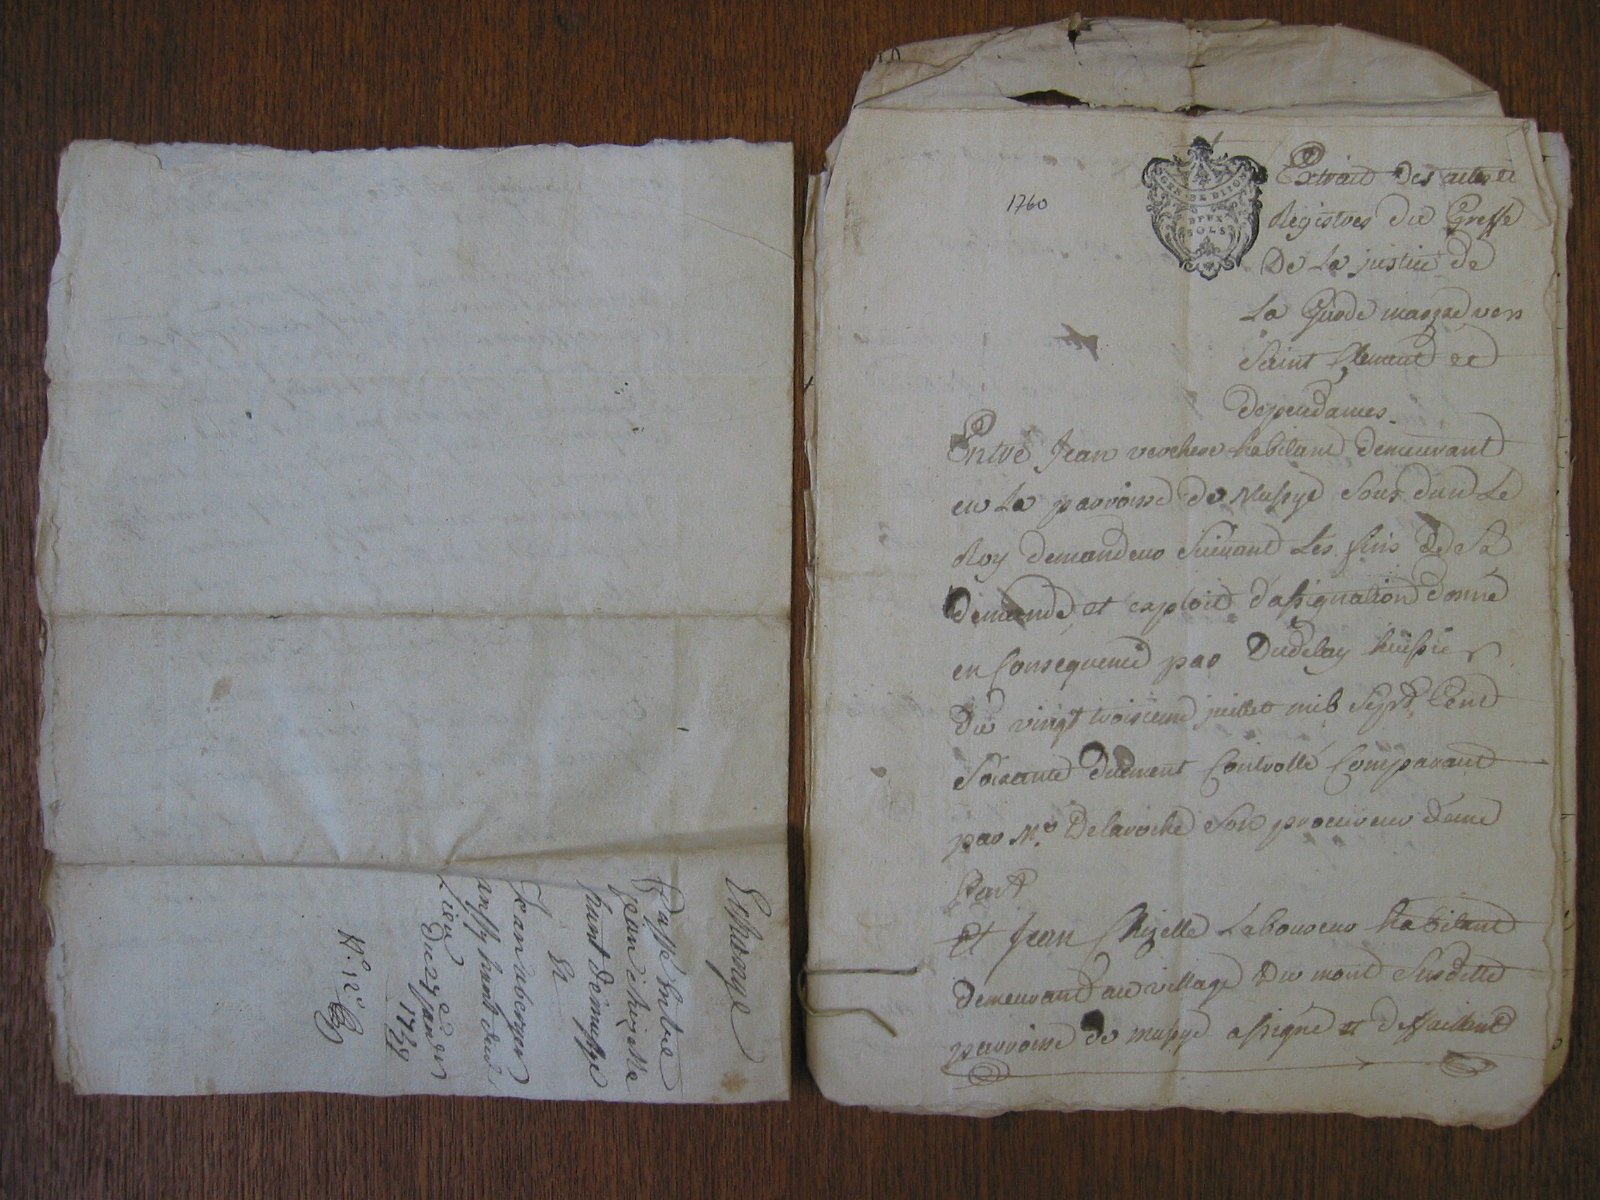 Eschange
Passé Entre
Jean chizelle
habitant de mussy
Et
Jean
habitant dud.
Lieu
Du 29e Janvier
N.o 12e
1760
GEN. DE DIJON
DEUX
SOLS
Extrait des actes et
Registres du Greffe
De La justice de
La Guiche
Saint Clement et
dependances.
Entre Jean verchere habitant demeurant
en La parroisse de Mussye Sous dun Le
Roy demandeur suivant Les fins de Sa
demande et exploit d'assignation donné
en Consequence par Dudelay huissier
Du vingt troisieme juillet mil Sept Cent
Soixante duement Controllé Comparant
par Me. Delaroche Son procureur d'une
Part
Et Jean Chizelle Laboureur habitant
demeurant au village Du mont Susditte
parroisse de mussye assigné et deffaillant